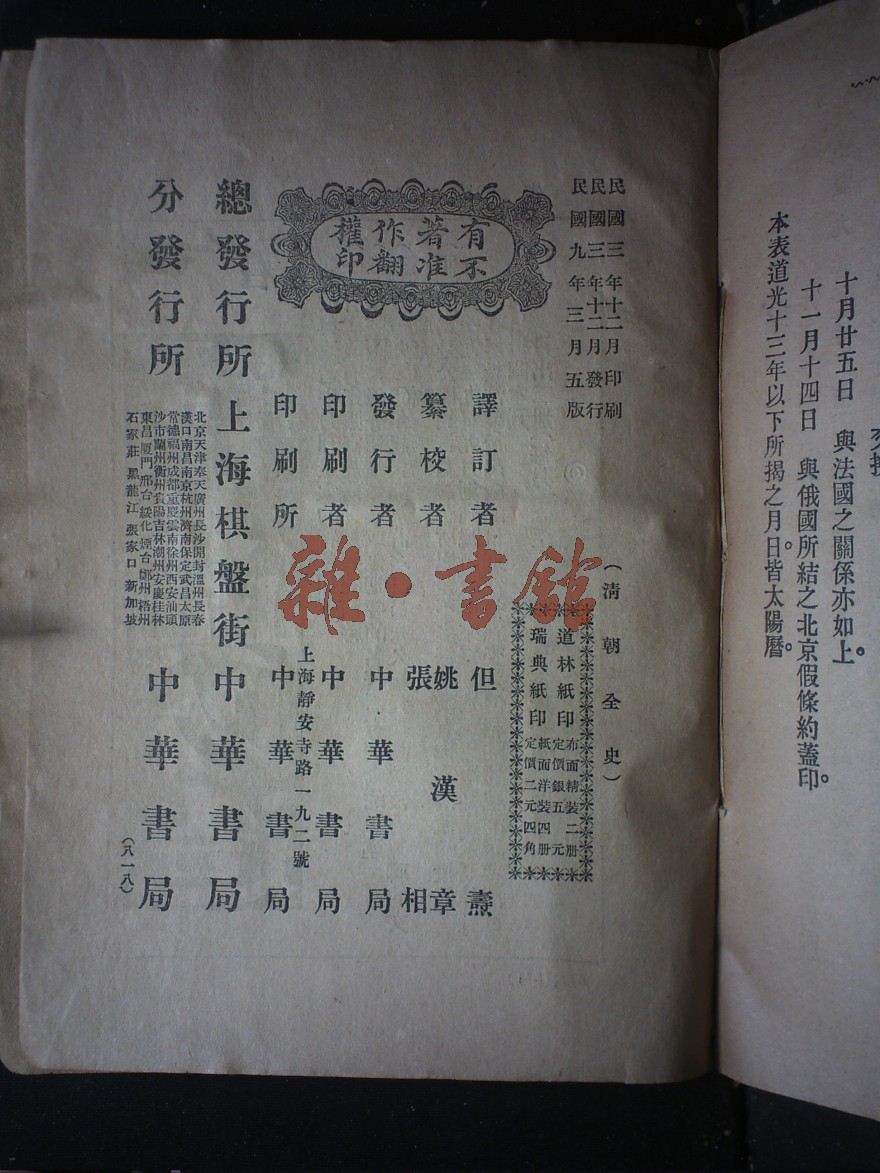 十月廿五日　與法國之關係亦如上。
十一月十四日　與俄國所結之北京假條約蓋印。
本表道光十三年以下所揭之月日皆太陽曆。
民國三年十二月印刷
民國三年十二月發行
民國九年三月五版
（清朝全史）
道林紙印 布面精裝二册 定價銀五元
瑞典紙印 紙面洋裝四册 定價二元四角
有著作權
不准翻印
譯訂者　但燾
纂校者　姚漢章
張相
發行者　中華書局
印刷者　中華書局
上海靜安寺路一九二號
印刷所　中華書局
總發行所　上海棋盤街中華書局
分發行所　中華書局
北京天津奉天廣州長沙開封溫州長春
漢口南昌南京杭州濟南保定武昌太原
常德福州成都重慶雲南徐州西安汕頭
沙市蘭州衡州貴陽吉林潮州安慶桂林
東昌廈門邢台綏化煙台鄭州梧州
石家莊 黑龍江 張家口 新加坡
（八一八）
雜·書館